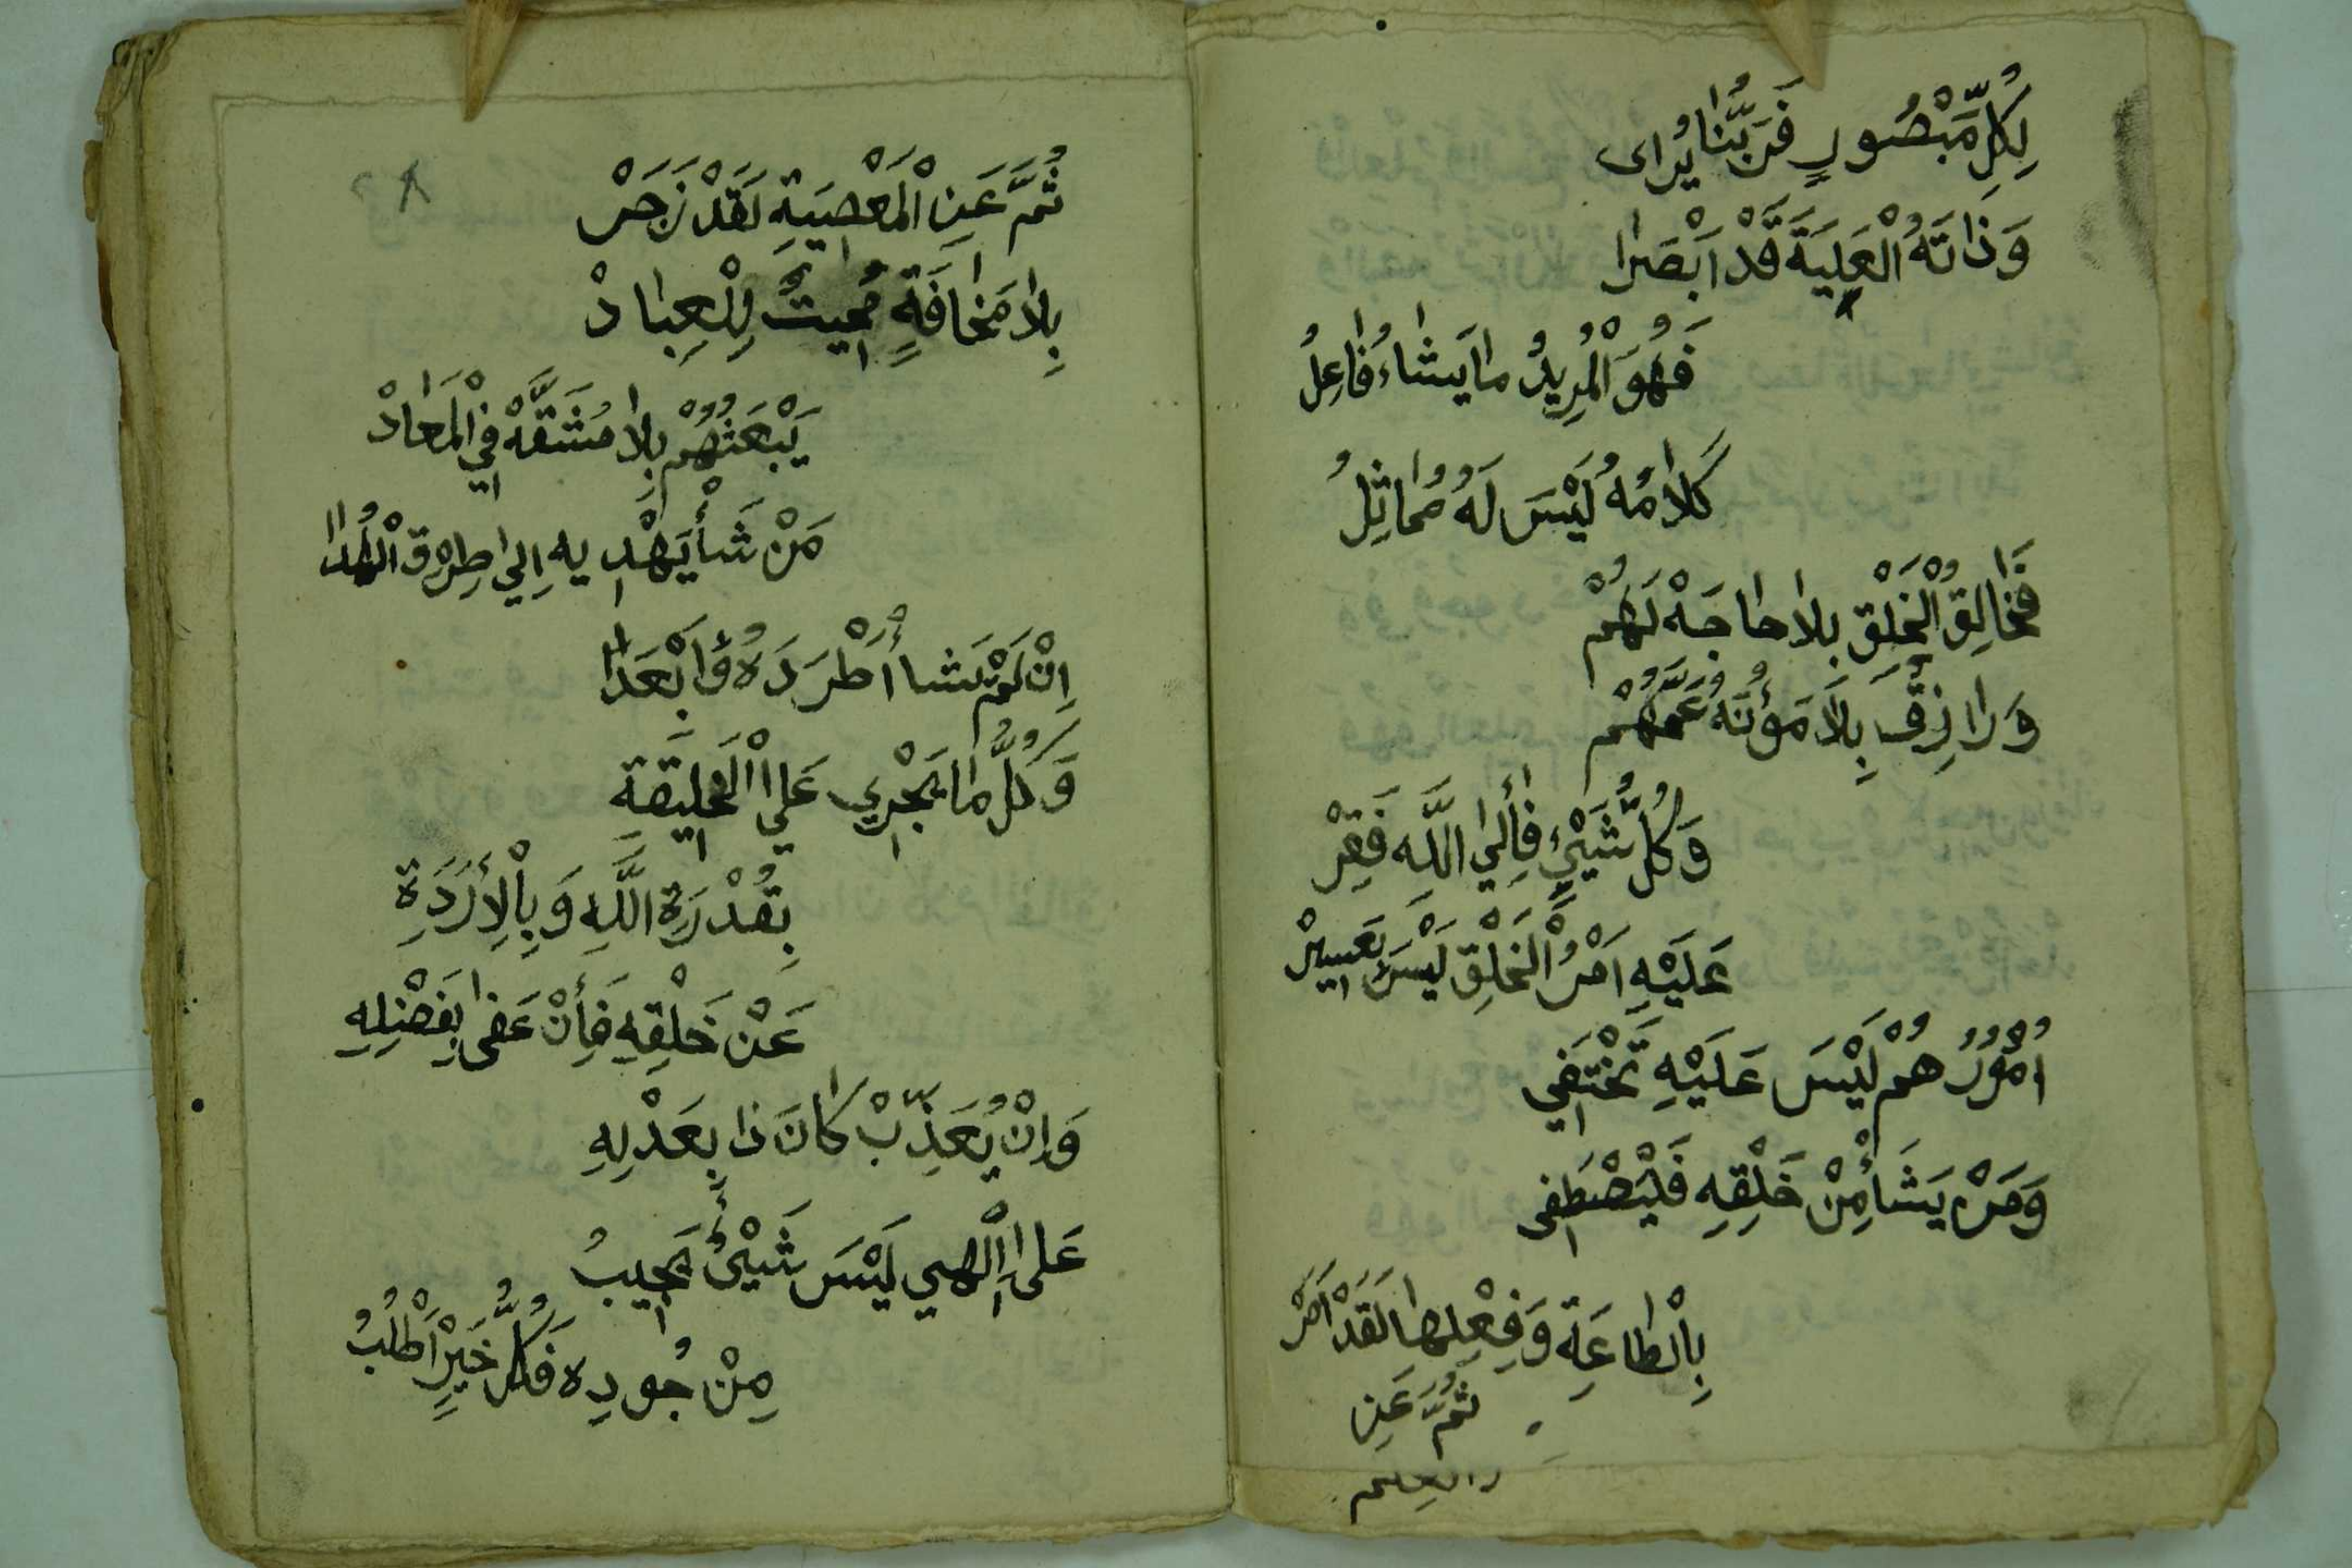 بِكُلِّ مَّبْصُورٍ فَرَبُّنَا يُرٰاى
وَذٰاتَهُ الْعَلِيَةَ قَدْ اَبْصَرٰا
فَهُوَ الْمُرِيدُ مٰا يَشٰاءُ فٰاعِلُ
كَلٰامُهُ لَيْسَ لَهُ مُمٰاثِلُ
فَخٰالِقُ الْخَلْقِ بِلٰا حٰاجَةْ لَهُمْ
وَرٰازِقٌ بِلَا مَؤُنَهُ عَمَّهُمْ
وَكُلُّ شَيْئٍ فَأِلَي اللَّهِ فَقِرْ
عَلَيْهِ اَمْرُ الْخَلْقِ لَيْسَ بَعَسِيْر
اُمُوْرُهُمْ لَيْسَ عَلَيْهِ تَخْتَفِي
وَمَنْ يَشَأْ مِنْ خَلْقِهِ فَلْيَصْطَفِى
بِالْطٰاعَةِ وَفِعْلِهٰا لَقَدْ اَمَرْ
ثُمَّ عَنِ
ثُمَّ عَنِ الْمَعْصِيَةِ لَقَدْ زَجَرْ
بِلٰا مَخٰافَةٍ مُمِيتُ لِلْعِبٰادْ
يَبْعَثُهُمْ بِلٰا مَشَقَّهْ فِي الْمَعٰادْ
مَنْ شَأْ يَهْدِيهِ اِلَي طِرْقِ الْهُدٰا
اِنْ لَمْ يَشَا أَطْرَدَهُ وَأَبْعَدٰا
وَكُلُّ مٰا يَجْرِي عَلَي الْخَلِيقَةِ
بِقُدْرَةِ اللَّهِ وَبِالْأِرَدَةِ
عَنْ خَلْقِهِ فَأِنْ عَفٰى بِفَضْلِهِ
وَاِنْ يُعَذِّبْ كٰانَ ذٰا بِعَدْلِهِ
عَلٰى اِلْهِي لَيْسَ شَيْئٌ يَجِيبُ
مِنْ جُودِهِ فَكُلُّ خَيْرٍ اَطْلُبُ